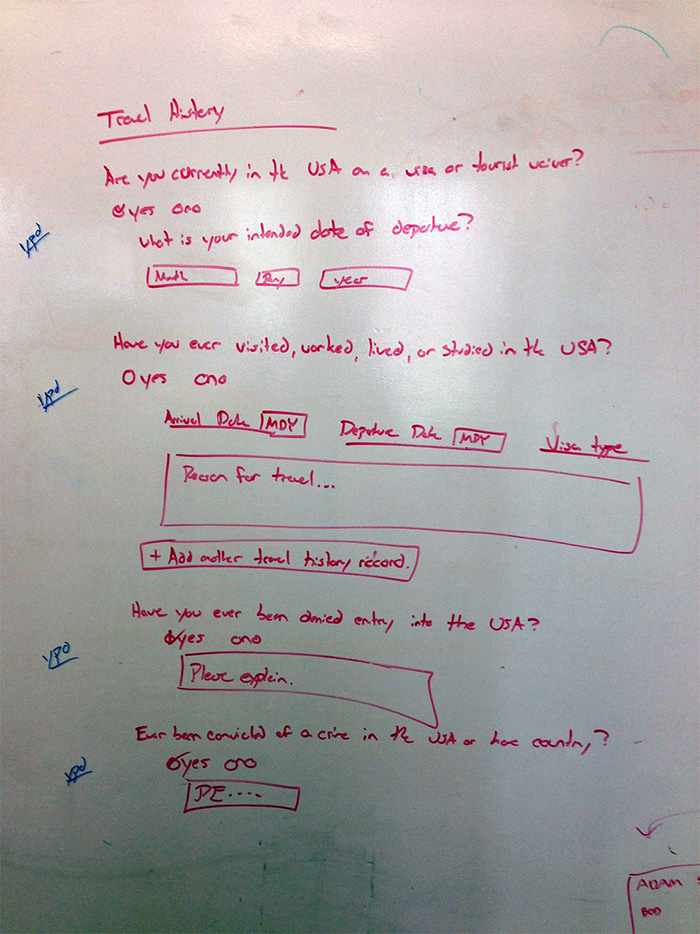 Travel History
Are you currently in the USA on a visa or tourist waiver?
yes no
What is your intended date of departure?
Month Day year
Have you ever visited, worked, lived, or studied in the USA?
yes no
Arrival Date MDY Departure Date MDY Visa type
Reason for travel...
+ Add another travel history record.
Have you ever been denied entry into the USA?
yes no
Please explain.
Ever been convicted of a crime in the USA or home country?
yes no
PE....
ADAM